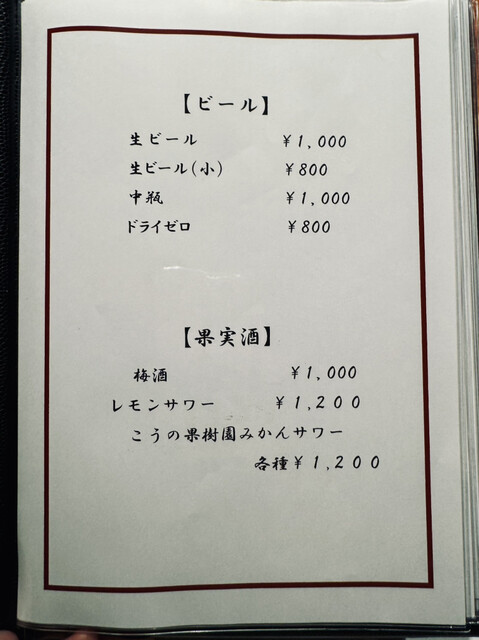 【ビール】
生ビール ¥1,000
生ビール(小) ¥800
中瓶 ¥1,000
ドライゼロ ¥800
【果実酒】
梅酒 ¥1,000
レモンサワー ¥1,200
こうの果樹園みかんサワー
各種¥1,200